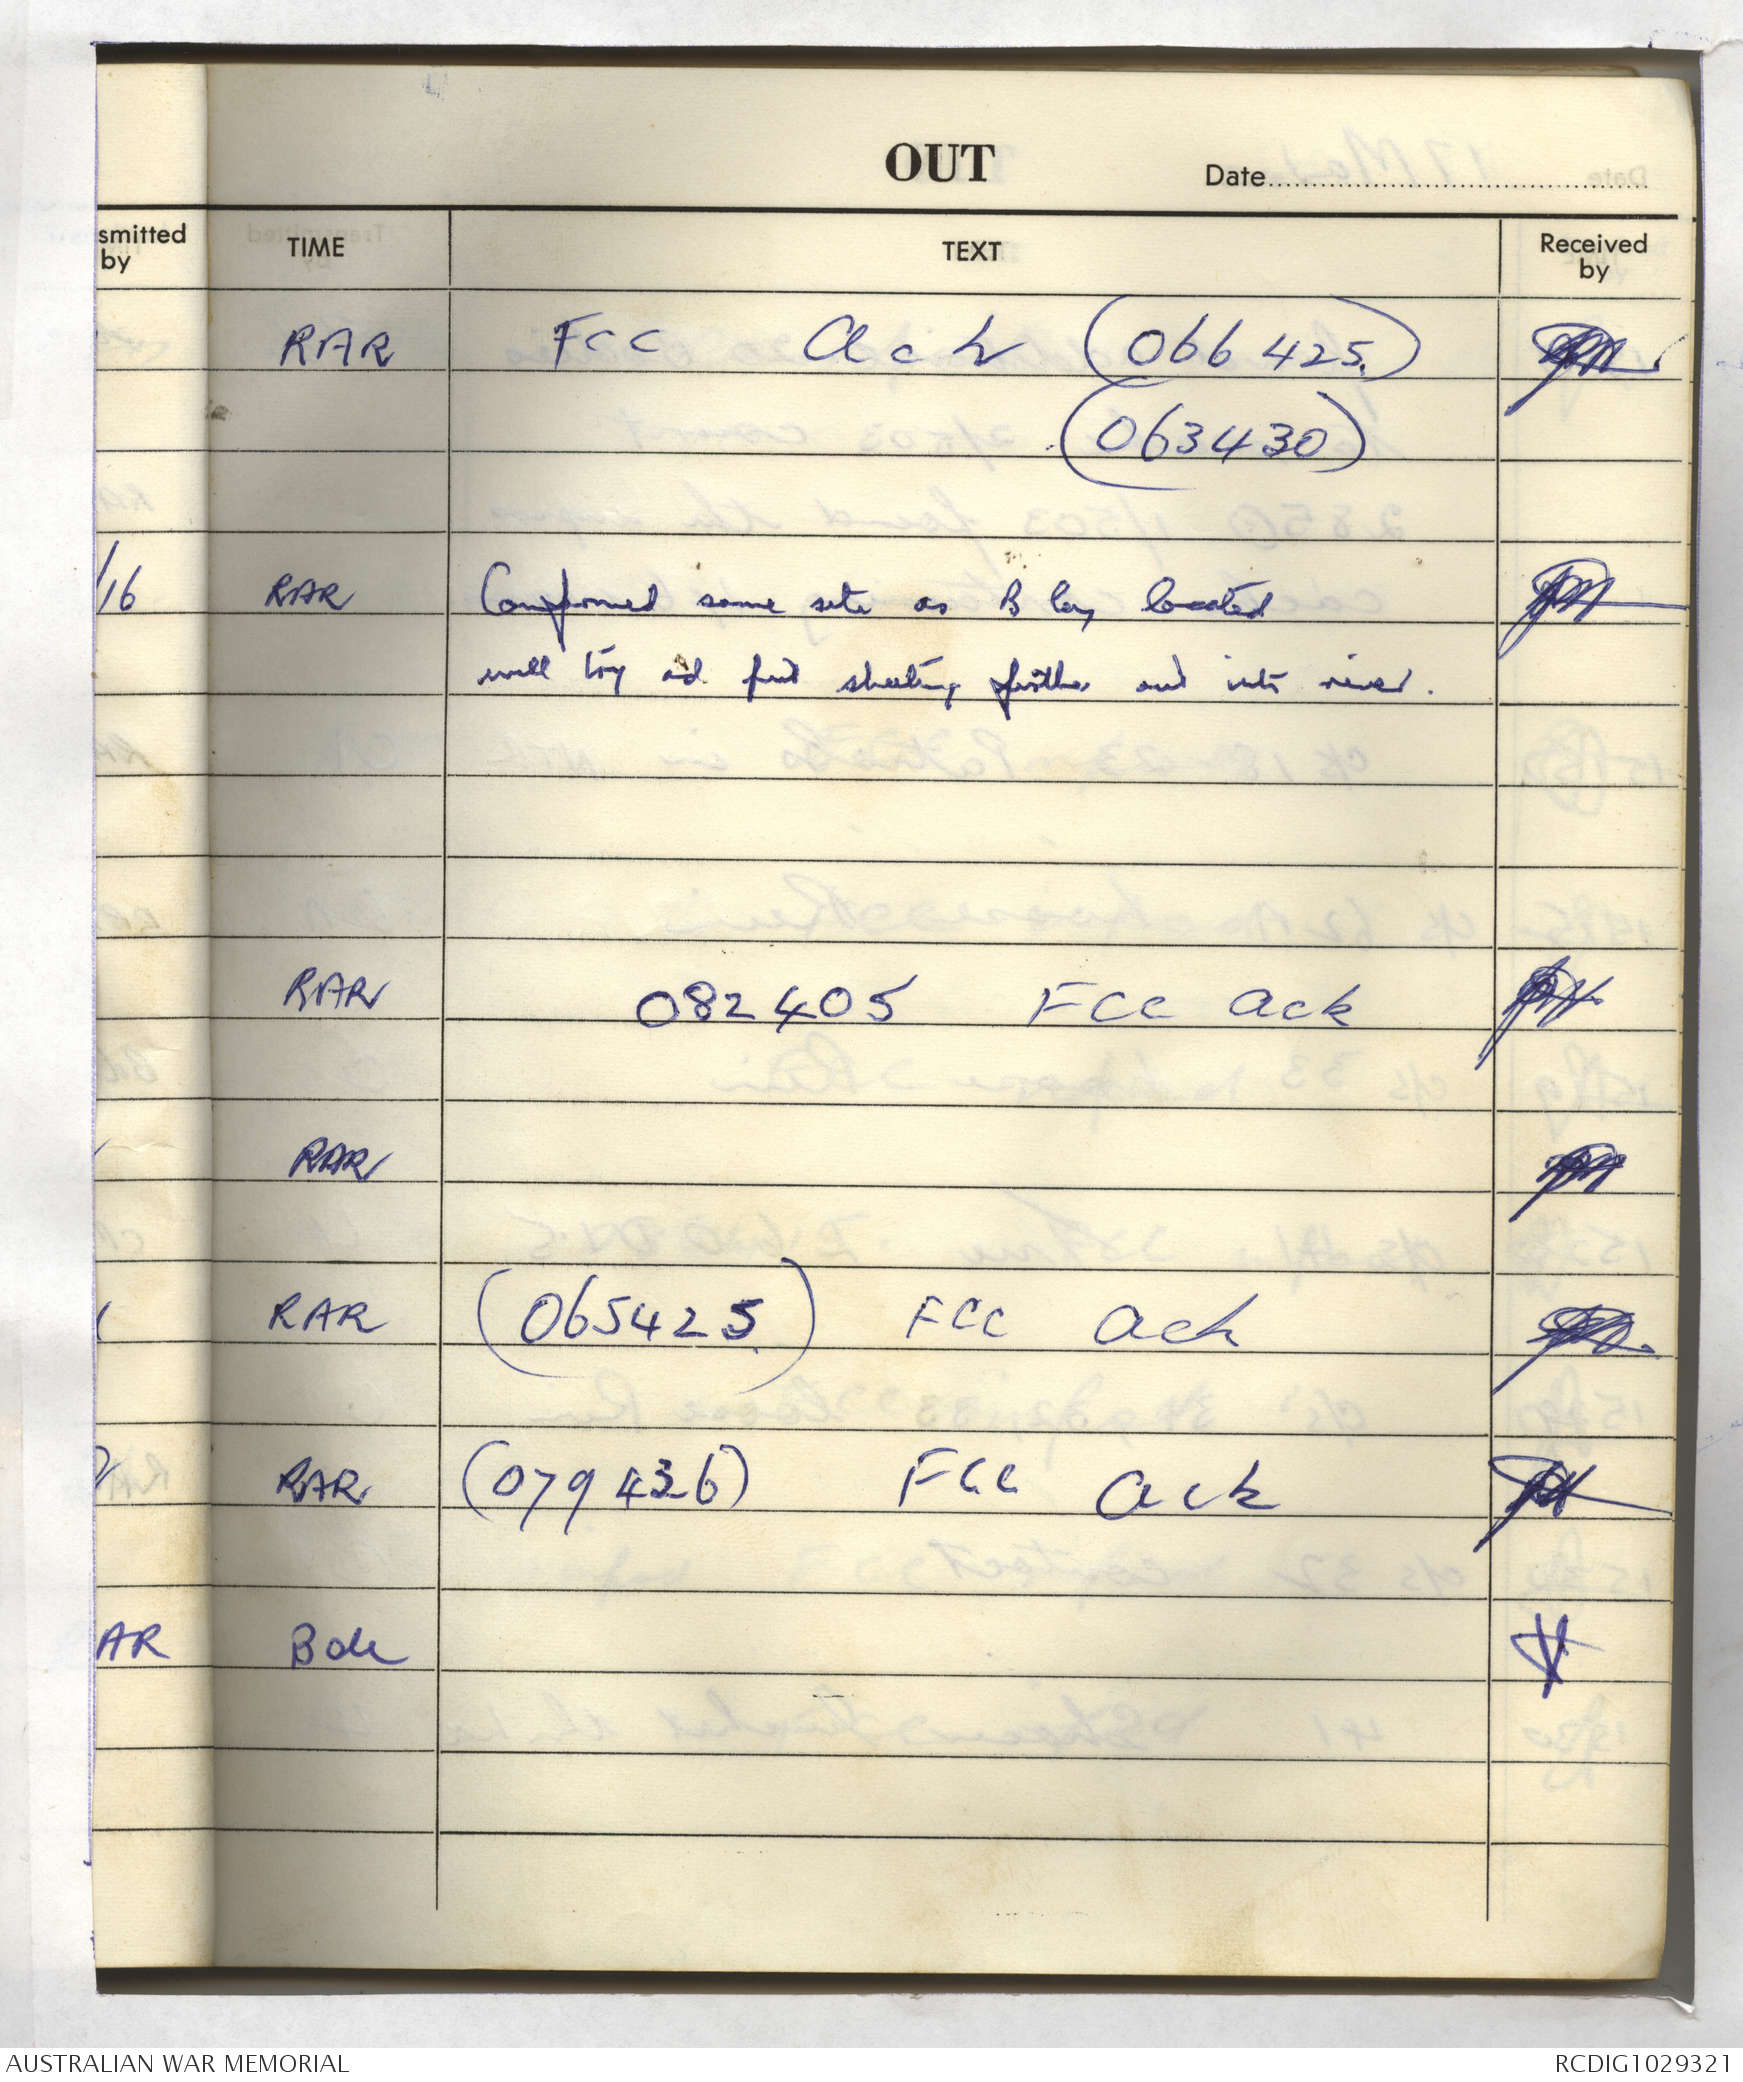 OUT Date
smitted by TIME TEXT Received by
RAR FCC Ack (066425)
(063430)
/16 RAR Confirmed same site as B Coy located
will try and find sheeting further and into river.
RAR 082405 FCC Ack
RAR
RAR (065425) FCC Ack
RAR (079436) FCC Ack
AR Bde
AUSTRALIAN WAR MEMORIAL RCDIG1029321